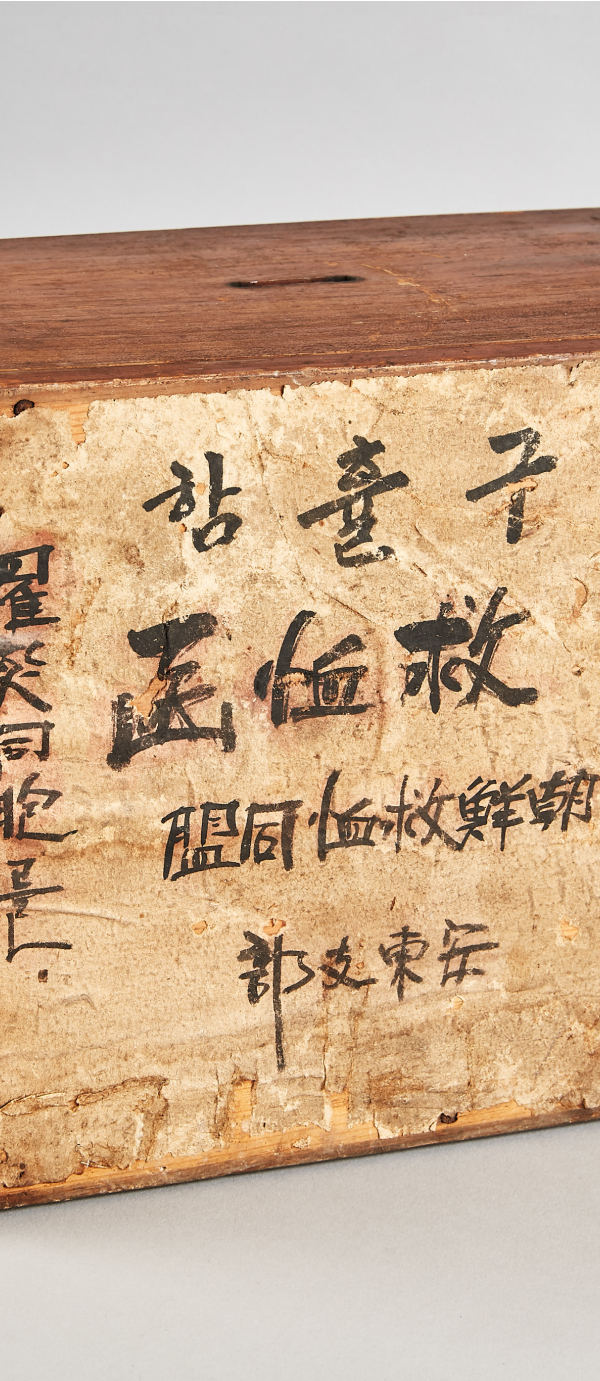 구휼함
救恤函
朝鮮救恤同盟
安東支部
罹災同胞를